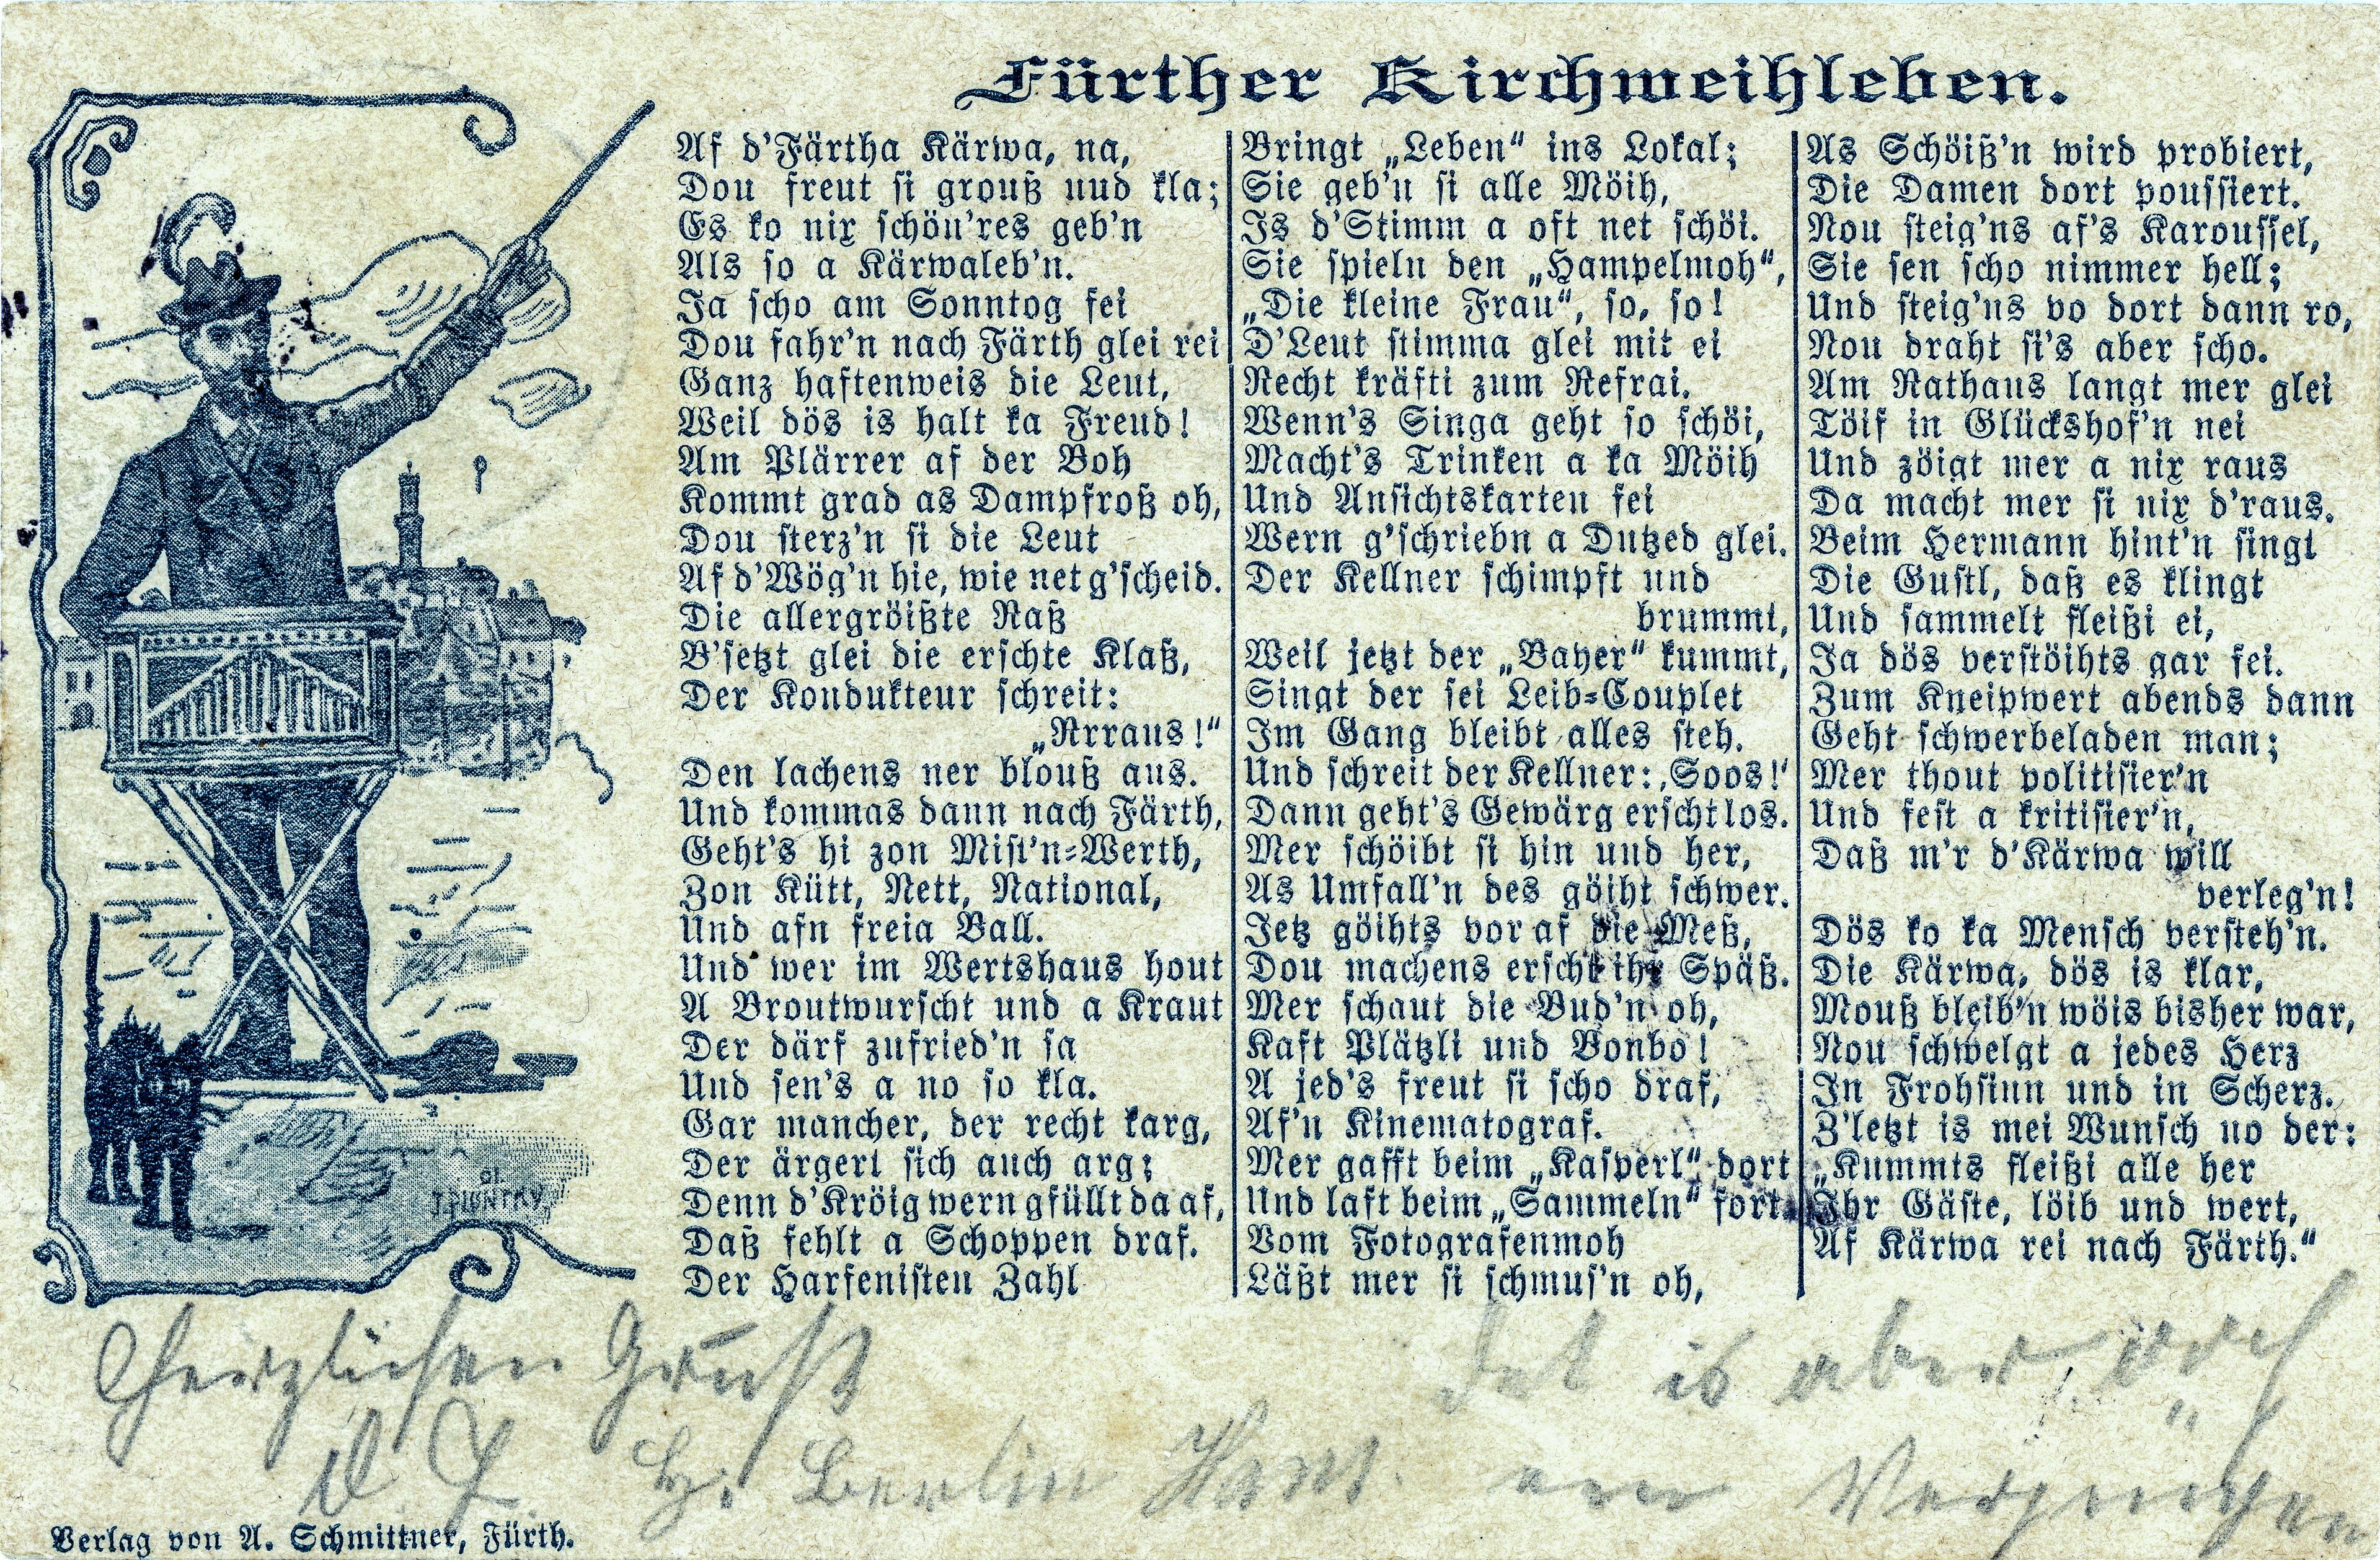 Fürther Kirchweihleben.
Af d'Färtha Kärwa, na,
Dou freut si grouß uud kla;
Es ko nix schön'res geb'n
Als so a Kärwaleb'n.
Ja scho am Sonntog fei
Dou fahr'n nach Färth glei rei
Ganz haftenweis die Leut,
Weil dös is halt ka Freud!
Am Plärrer af der Boh
Kommt grad as Dampfroß oh,
Dou sterz'n si die Leut
Af d'Wög'n hie, wie net g'scheid.
Die allergröißte Raß
B'setzt glei die erschte Klaß,
Der Kondukteur schreit:
„Rrraus!“
Den lachens ner blouß aus.
Und kommas dann nach Färth,
Geht's hi zon Mist'n=Werth,
Zon Kütt, Nett, National,
Und afn freia Ball.
Und wer im Wertshaus hout
A Broutwurscht und a Kraut
Der därf zufried'n sa
Und sen's a no so kla.
Gar mancher, der recht karg,
Der ärgert sich auch arg;
Denn d'Kröig wern gfüllt da af,
Daß fehlt a Schoppen draf.
Der Harfenisten Zahl
Bringt „Leben“ ins Lokal;
Sie geb'n si alle Möih,
Is d'Stimm a oft net schöi.
Sie spieln den „Hampelmoh“,
„Die kleine Frau“, so, so!
D'Leut stimma glei mit ei
Recht kräfti zum Refrai.
Wenn's Singa geht so schöi,
Macht's Trinken a ka Möih
Und Ansichtskarten fei
Wern g'schriebn a Dutzed glei.
Der Kellner schimpft und
brummt,
Weil jetzt der „Bayer“ kummt,
Singt der sei Leib=Couplet
Im Gang bleibt alles steh.
Und schreit der Kellner: ‚Soos!‘
Dann geht's Gewärg erscht los.
Mer schöibt si hin und her,
As Umfall'n des göiht schwer.
Jetz göihts vor af die Meß,
Dou machens erscht ihr Späß.
Mer schaut die Bud'n oh,
Kaft Plätzli und Bonbo!
A jed's freut si scho draf,
Af'n Kinematograf.
Mer gafft beim „Kasperl“ dort
Und laft beim „Sammeln“ fort.
Vom Fotografenmoh
Läßt mer si schmus'n oh,
As Schöiß'n wird probiert,
Die Damen dort poussiert.
Nou steig'ns af's Karoussel,
Sie sen scho nimmer hell;
Und steig'ns vo dort dann ro,
Nou draht si's aber scho.
Am Rathaus langt mer glei
Töif in Glückshof'n nei
Und zöigt mer a nix raus
Da macht mer si nix d'raus.
Beim Hermann hint'n singt
Die Gustl, daß es klingt
Und sammelt fleißi ei,
Ja dös verstöihts gar fei.
Zum Kneipwert abends dann
Geht schwerbeladen man;
Mer thout politisier'n
Und fest a kritisier'n,
Daß m'r d'Kärwa will
verleg'n!
Dös ko ka Mensch versteh'n.
Die Kärwa, dös is klar,
Mouß bleib'n wöis bisher war,
Nou schwelgt a jedes Herz
In Frohsinn und in Scherz.
Z'letzt is mei Wunsch no der:
„Kummts fleißi alle her
Ihr Gäste, löib und wert,
Af Kärwa rei nach Färth.“
Herzlichen Gruß
Det is aber
Berlin Hans.
een Vergnügen
Verlag von A. Schmittner, Fürth.